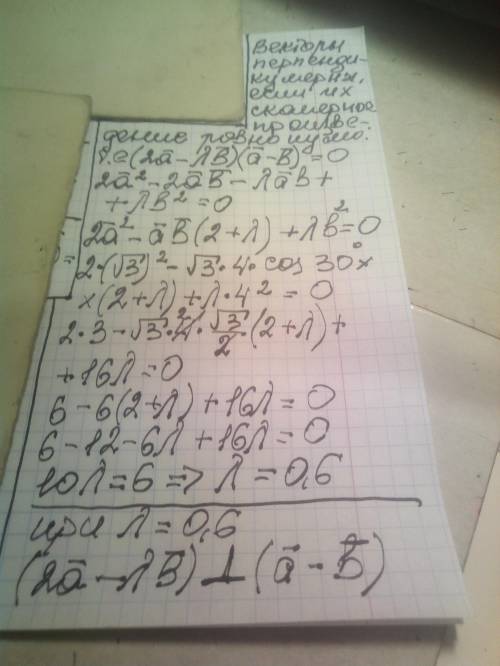 Векторы
перпенди-
кулярны,
если их
скалярное
произве-
дение равно нулю.
т.е (2a̅ - λb̅)(a̅ - b̅) = 0
2a̅² - 2a̅b̅ - λa̅b̅ +
+ λb̅² = 0
2a̅² - a̅b̅(2+λ) + λb̅² = 0
2·(√3)² - √3·4·cos 30° ×
×(2+λ) + λ·4² = 0
2·3 - √3·4̸²·√3/2̸·(2+λ) +
+ 16λ = 0
6 - 6(2+λ) + 16λ = 0
6 - 12 - 6λ + 16λ = 0
10λ = 6 => λ = 0,6
при λ = 0,6
(2a̅ - λb̅) ⊥ (a̅ - b̅)